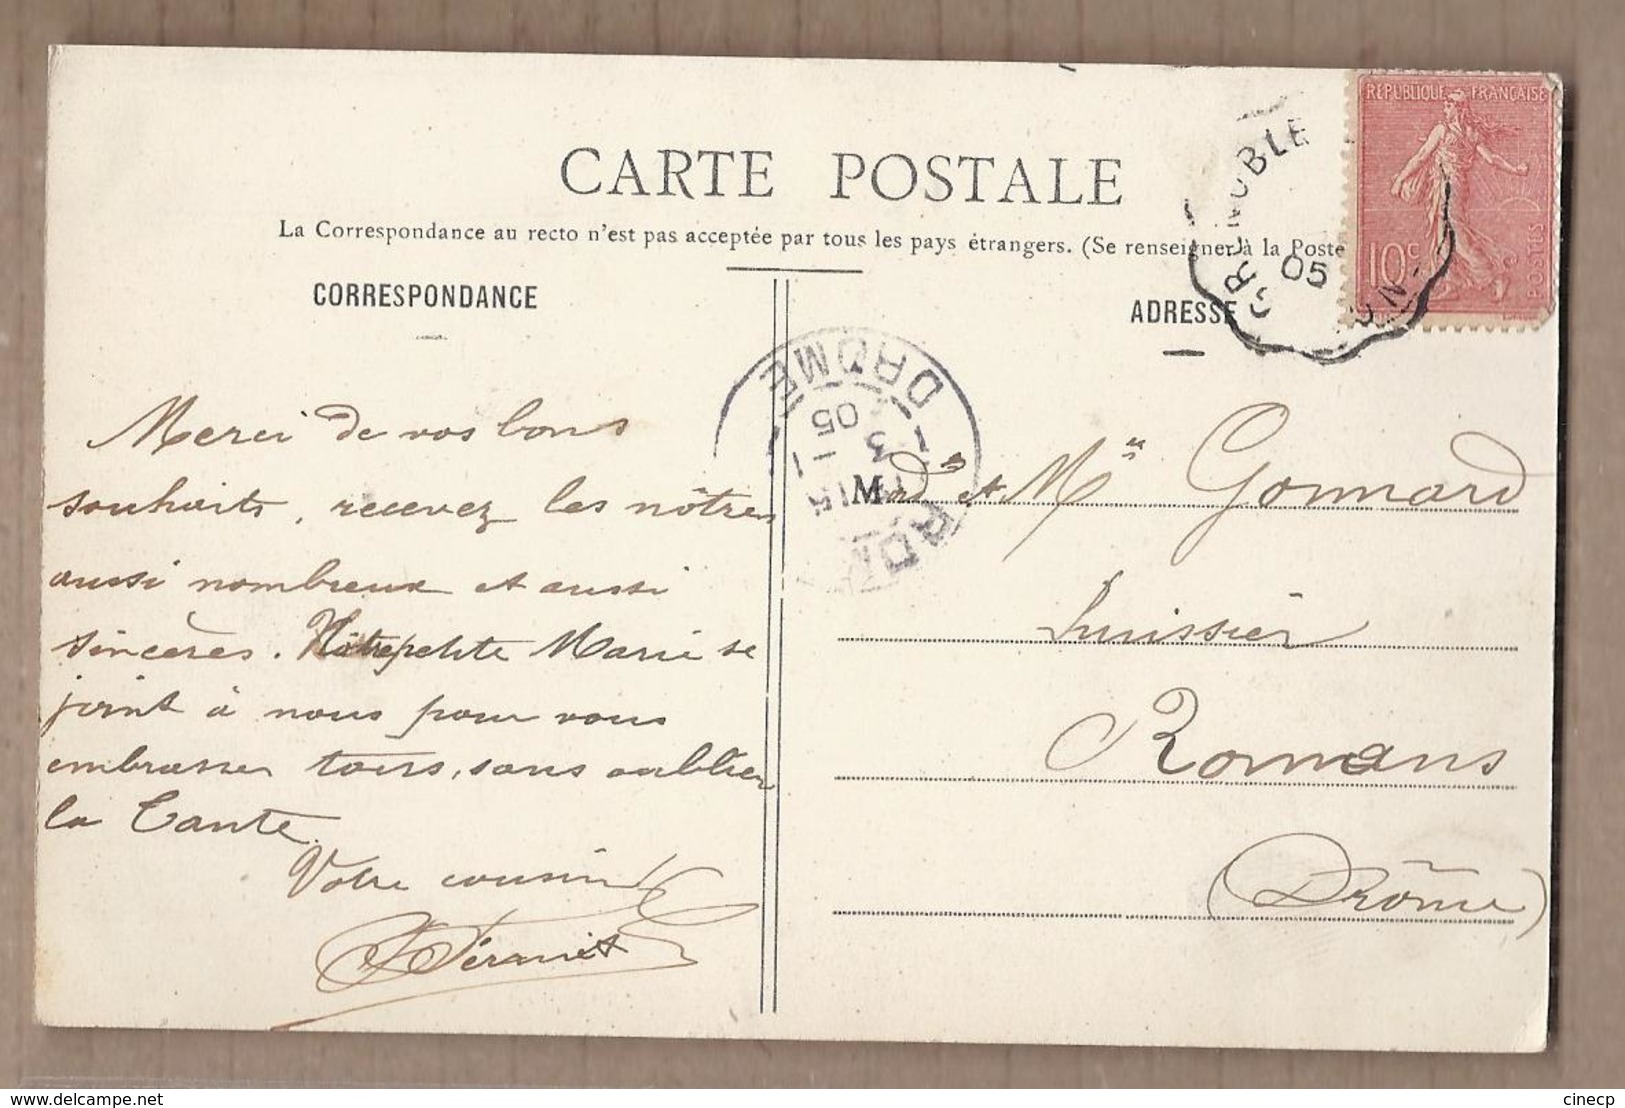 CARTE POSTALE
La Correspondance au recto n'est pas acceptée par tous les pays étrangers. (Se renseigner à la Poste
CORRESPONDANCE
Merci de vos bons
souhaits, recevez les nôtres
aussi nombreux et aussi
sincères. Notre petite Marie se
joint à nous pour vous
embrasser tous, sans oublier
la Tante.
Votre cousin
ADRESSE
M et M Gonnard
huissier
Romans
(Drôme)
RÉPUBLIQUE FRANÇAISE
10c
POSTES
GRENOBLE
05
DRÔME
3
05
delcampe.net
cinecp